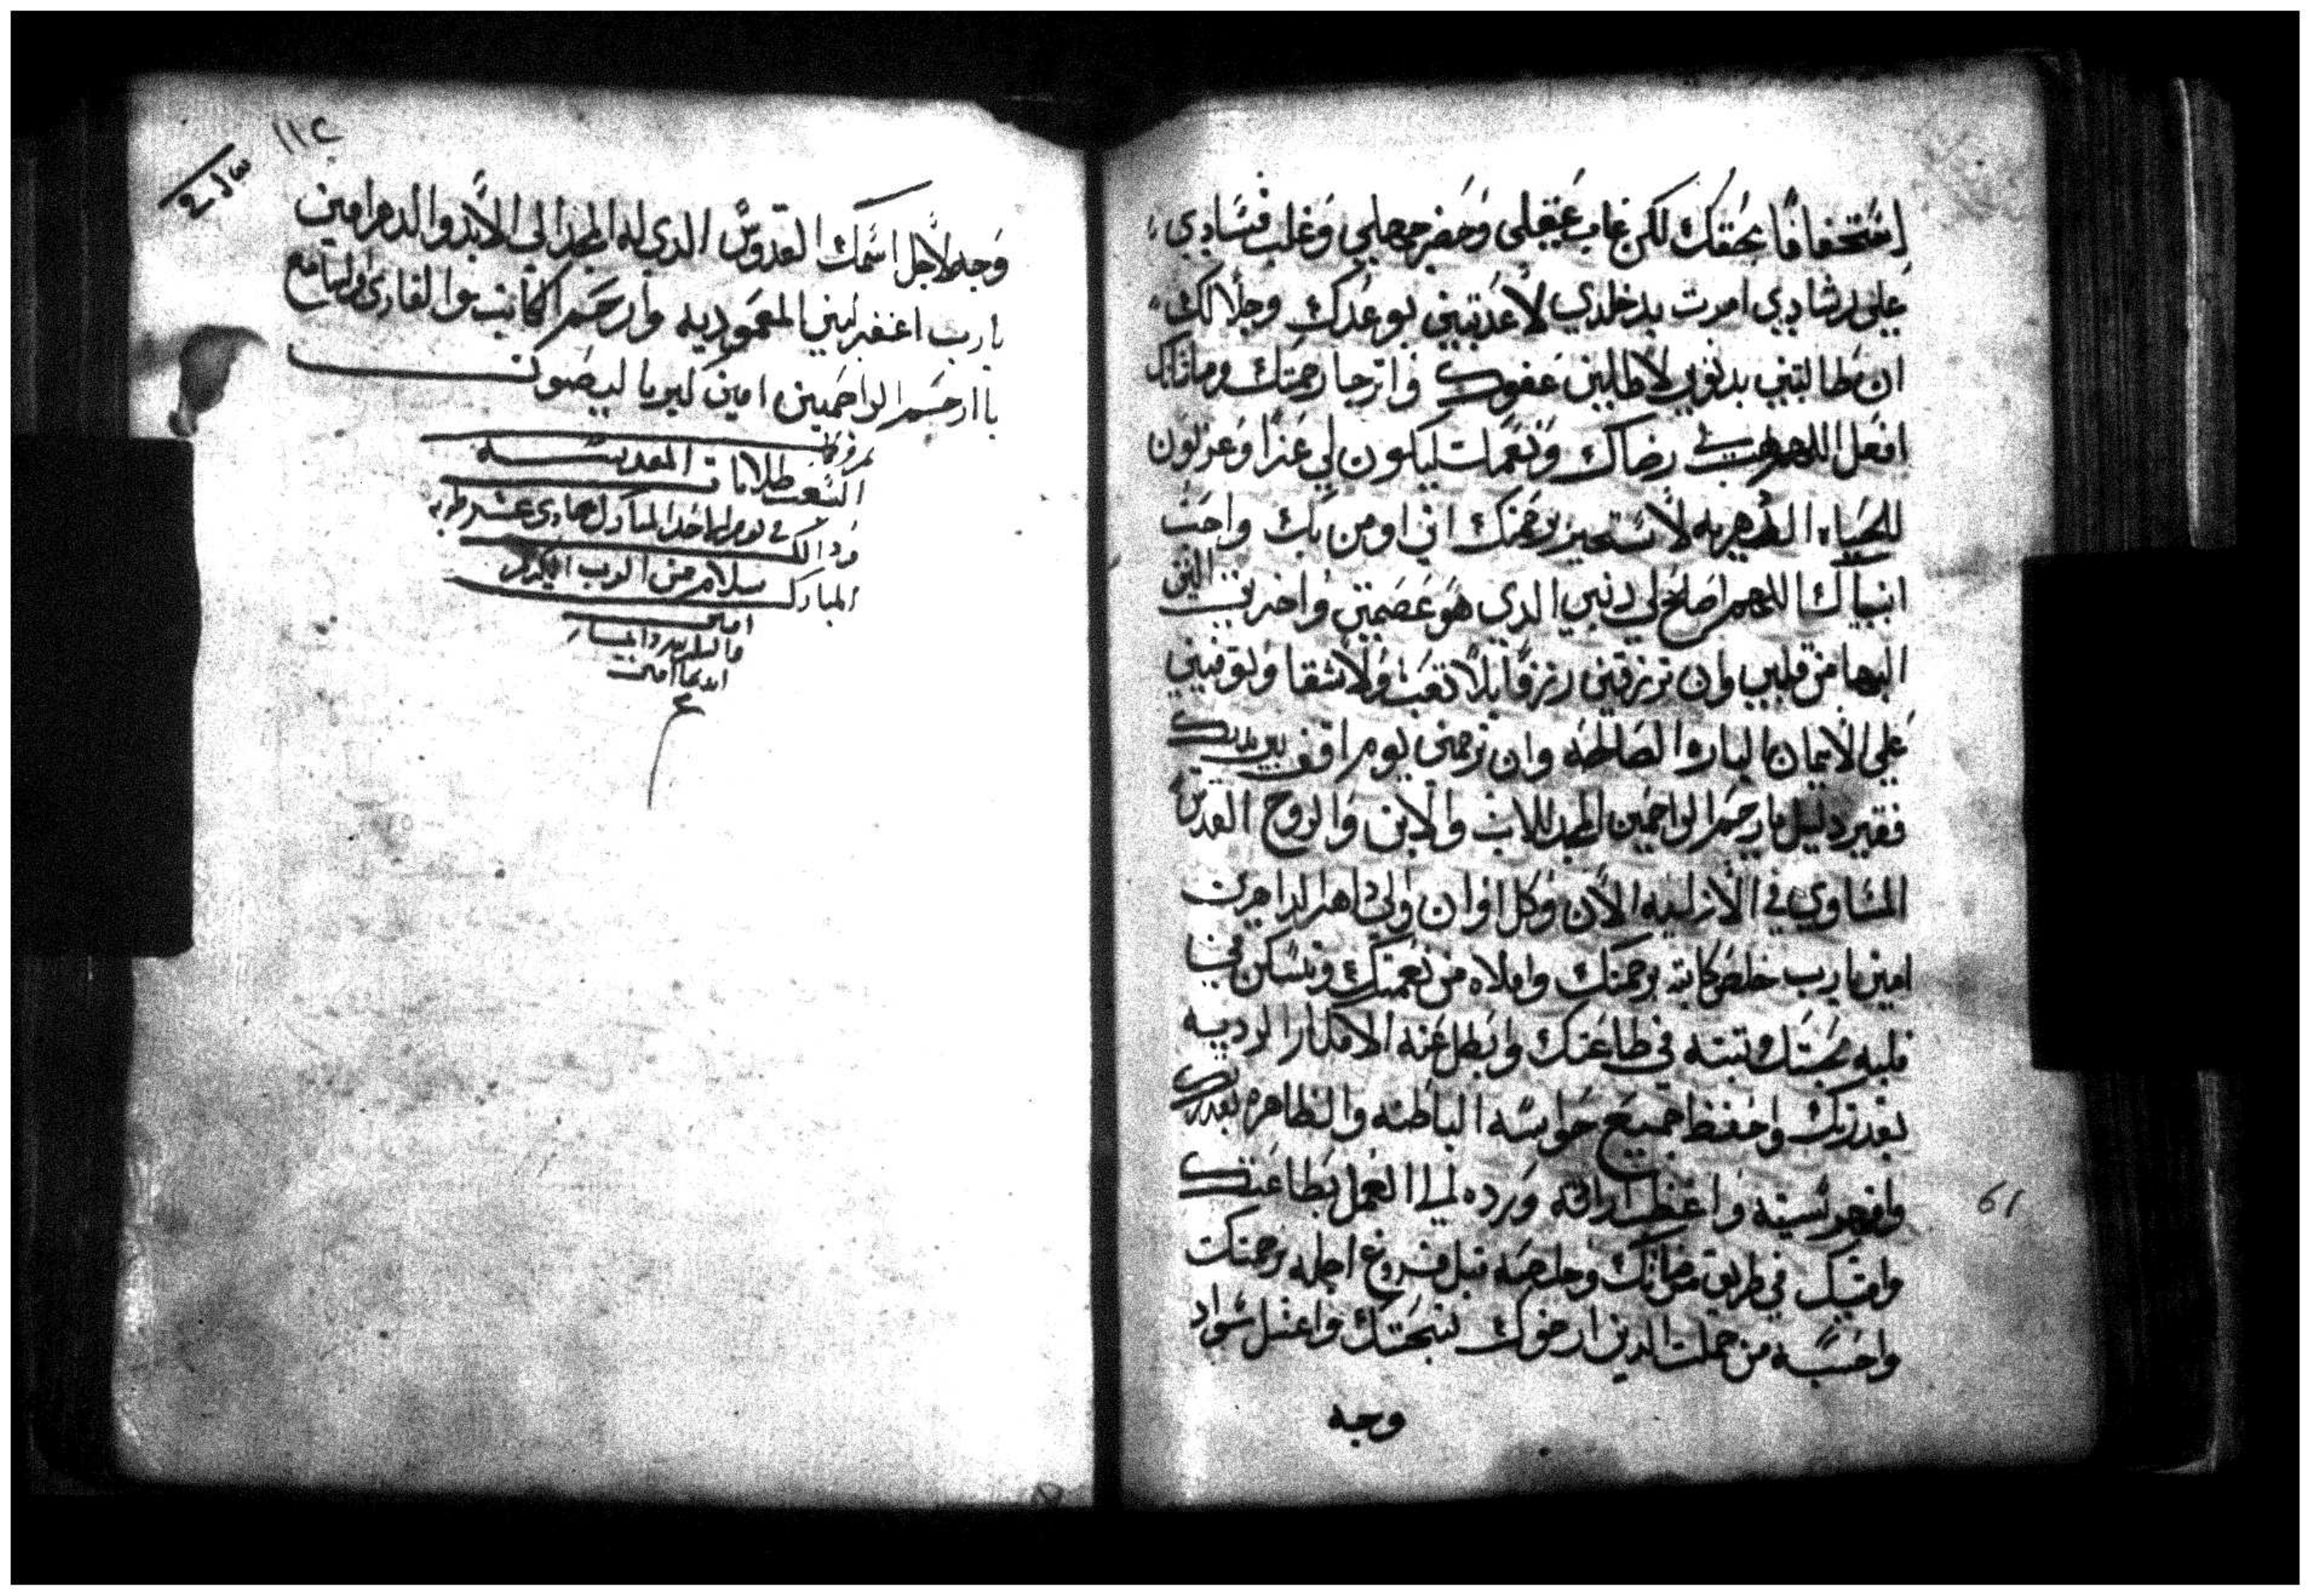 استخفافا بحقك لكن غاب عقلي وحضر جهلي وغلب فسادي
علي رشادي امرت بدخلدي لاعدتيني بوعدك وجلالك
ان طالبتني بدنوبي لاطالبن عفوك واترجا رحمتك
افعل اللهم هب لي رضاك ونعمات ليكون لي عزا وعزلون
للحياه الدهريه لاستجير برحمتك اني اومن بك واحب
انبياك اللهم اصلح لي ديني الدي هو عصمتي واخدي
البها من قلبي وان ترزقني رزقا بلا تعب ولا شقا وتوفيني
علي الايمان الباروا الصالحه وان ترحمني يوم اقف بين يديك
فقير دليل يا رحم الراحمين المجد للاب والابن والروح القدس
المساوي في الازليه الان وكل اوان والي داهر الداهرين
امين يا رب خلص كاتبه برحمتك واملاه من نعمتك وتسكن في
قلبه محبتك وتبته في طاعتك وابطل عنه الافكار الرديه
بقدرتك واحفظ جميع حواسه الباطنه والظاهره بقدرتك
وافرجو نسيته واعظم اراته ورده لي العمل بطاعتك
وامتيك في طريق مرضاتك وخلصه قبل فروغ اجله برحمتك
واحسبه من جملت الدين ارضوك لنبحتك واغسل سواد
وجه
61
١١٢
وجه لاجل اسمك القدوس الدي له المجد الي الابد والدهر امين
يا رب اغفر لبني المعموديه وارحم الكاتب والقاري والسامع
يا ارحم الراحمين امين كيرياليصون
السبعت طلابات المقدسه
ودالك في يوم الاحد المبارك حادي عشر طوبه
المبارك سلام من الرب
امين
والسامع
ابديا امين